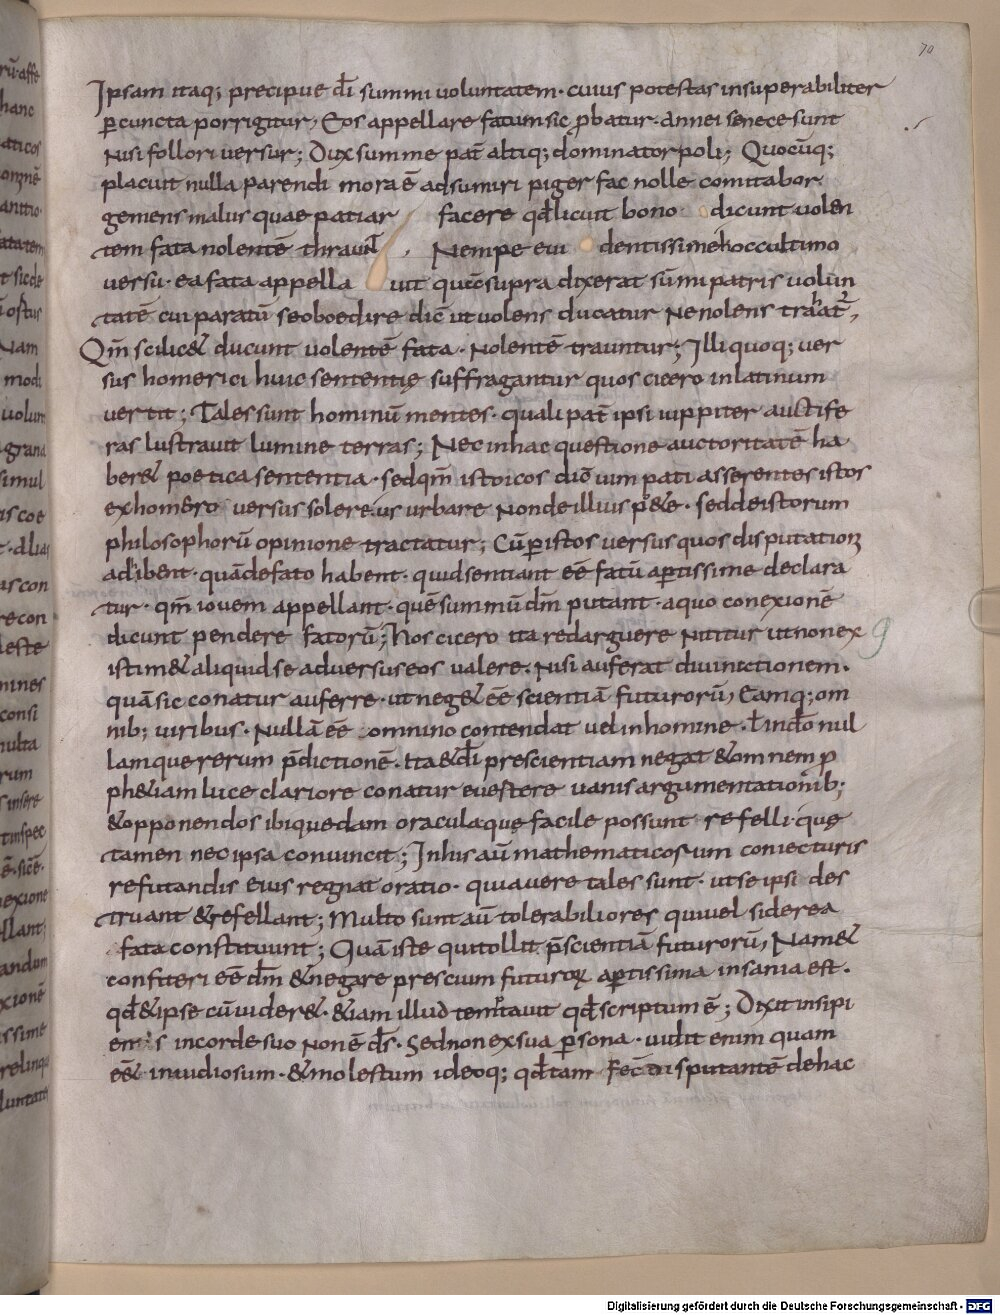 70
Ipsam itaq; precipue dī summi uoluntatem· cuius potestas insuperabiliter
ꝑ cuncta porrigitur, Eos appellare fatum sic ꝓbatur· annei senece sunt
Nisi fallor ii uersus; Dux summe pat̄ altiq; dominator poli; Quocūq;
placuit nulla parendi mora ē adsum iri piger fac nolle comitabor
gemens malus quae patiar facere qđ licuit bono dicunt uolen
tem fata nolentē
Nempe eui dentissime hoc ultimo
uersu· ea fata appella uit quę supra dixerat sūmi patris uolun
tatē cui paratū se oboedire dic̄ ut uolens ducatur Ne nolens
Qm̄ scilic& ducunt uolentē fata· Nolentē trauntur; Illi quoq; uer
sus homerici huic sententię suffragantur quos cicero in latinum
uertit; Tales sunt hominū mentes· quali pat̄ ipsi iuppiter auctife
ras lustrauit lumine terras; Nec in hac questione auctoritatē ha
ber& poetica sententia· sed qm̄ istoicos
ex homero uersus solere usurbare Non de illius sed de istorum
philosophorū opinione tractatur; Cū ꝑ istos uersus quos disputationi
adibent· quā de fato habent· quid sentiant eē fatū aꝑtissime declara
tur· qm̄ iouem appellant· quē summū dm̄ putant· a quo conexionē
dicunt pendere fatorū; hos cicero ita redarguere Nititur ut non ex
istim& aliquid se aduersus eos ualere· Nisi auferat diuinctionem·
quā sic conatur auferre· ut neg& eē scientiā futurorū, Eamq; om
nib; uiribus· Nullā eē omnino contendat uel in homine· ł in dō nul
lamque rerum p̄dictionē· Ita & dī prescientiam negat & omnem ꝓ
ph&iam luce clariore conatur euertere uanis argumentationib;
& opponendo sibi quędam oracula que facile possunt refelli· quę
tamen nec ipsa conuincit; In his aū mathematicorum coniecturis
refutandis eius regnat oratio· quia uere tales sunt· ut se ipsi des
truant & refellant; Multo sunt aū tolerabiliores qui uel siderea
fata constituunt; Quā iste qui tollit p̄scientiā futurorū, Nam &
confiteri eē dm̄ & negare prescium futuroꝝ aꝑtissima insania est·
qđ & ipse cū uider&· &iam illud temtauit qđ scriptum ē; Dixit insipi
ens in corde suo Non ē ds̄· Sed non ex sua ꝑsona· uidit enim quam
eē& inuidiosum· & molestum ideoq; qđ tam fec̄ disputantē de hac
9
Digitalisierung gefördert durch die Deutsche Forschungsgemeinschaft - DFG